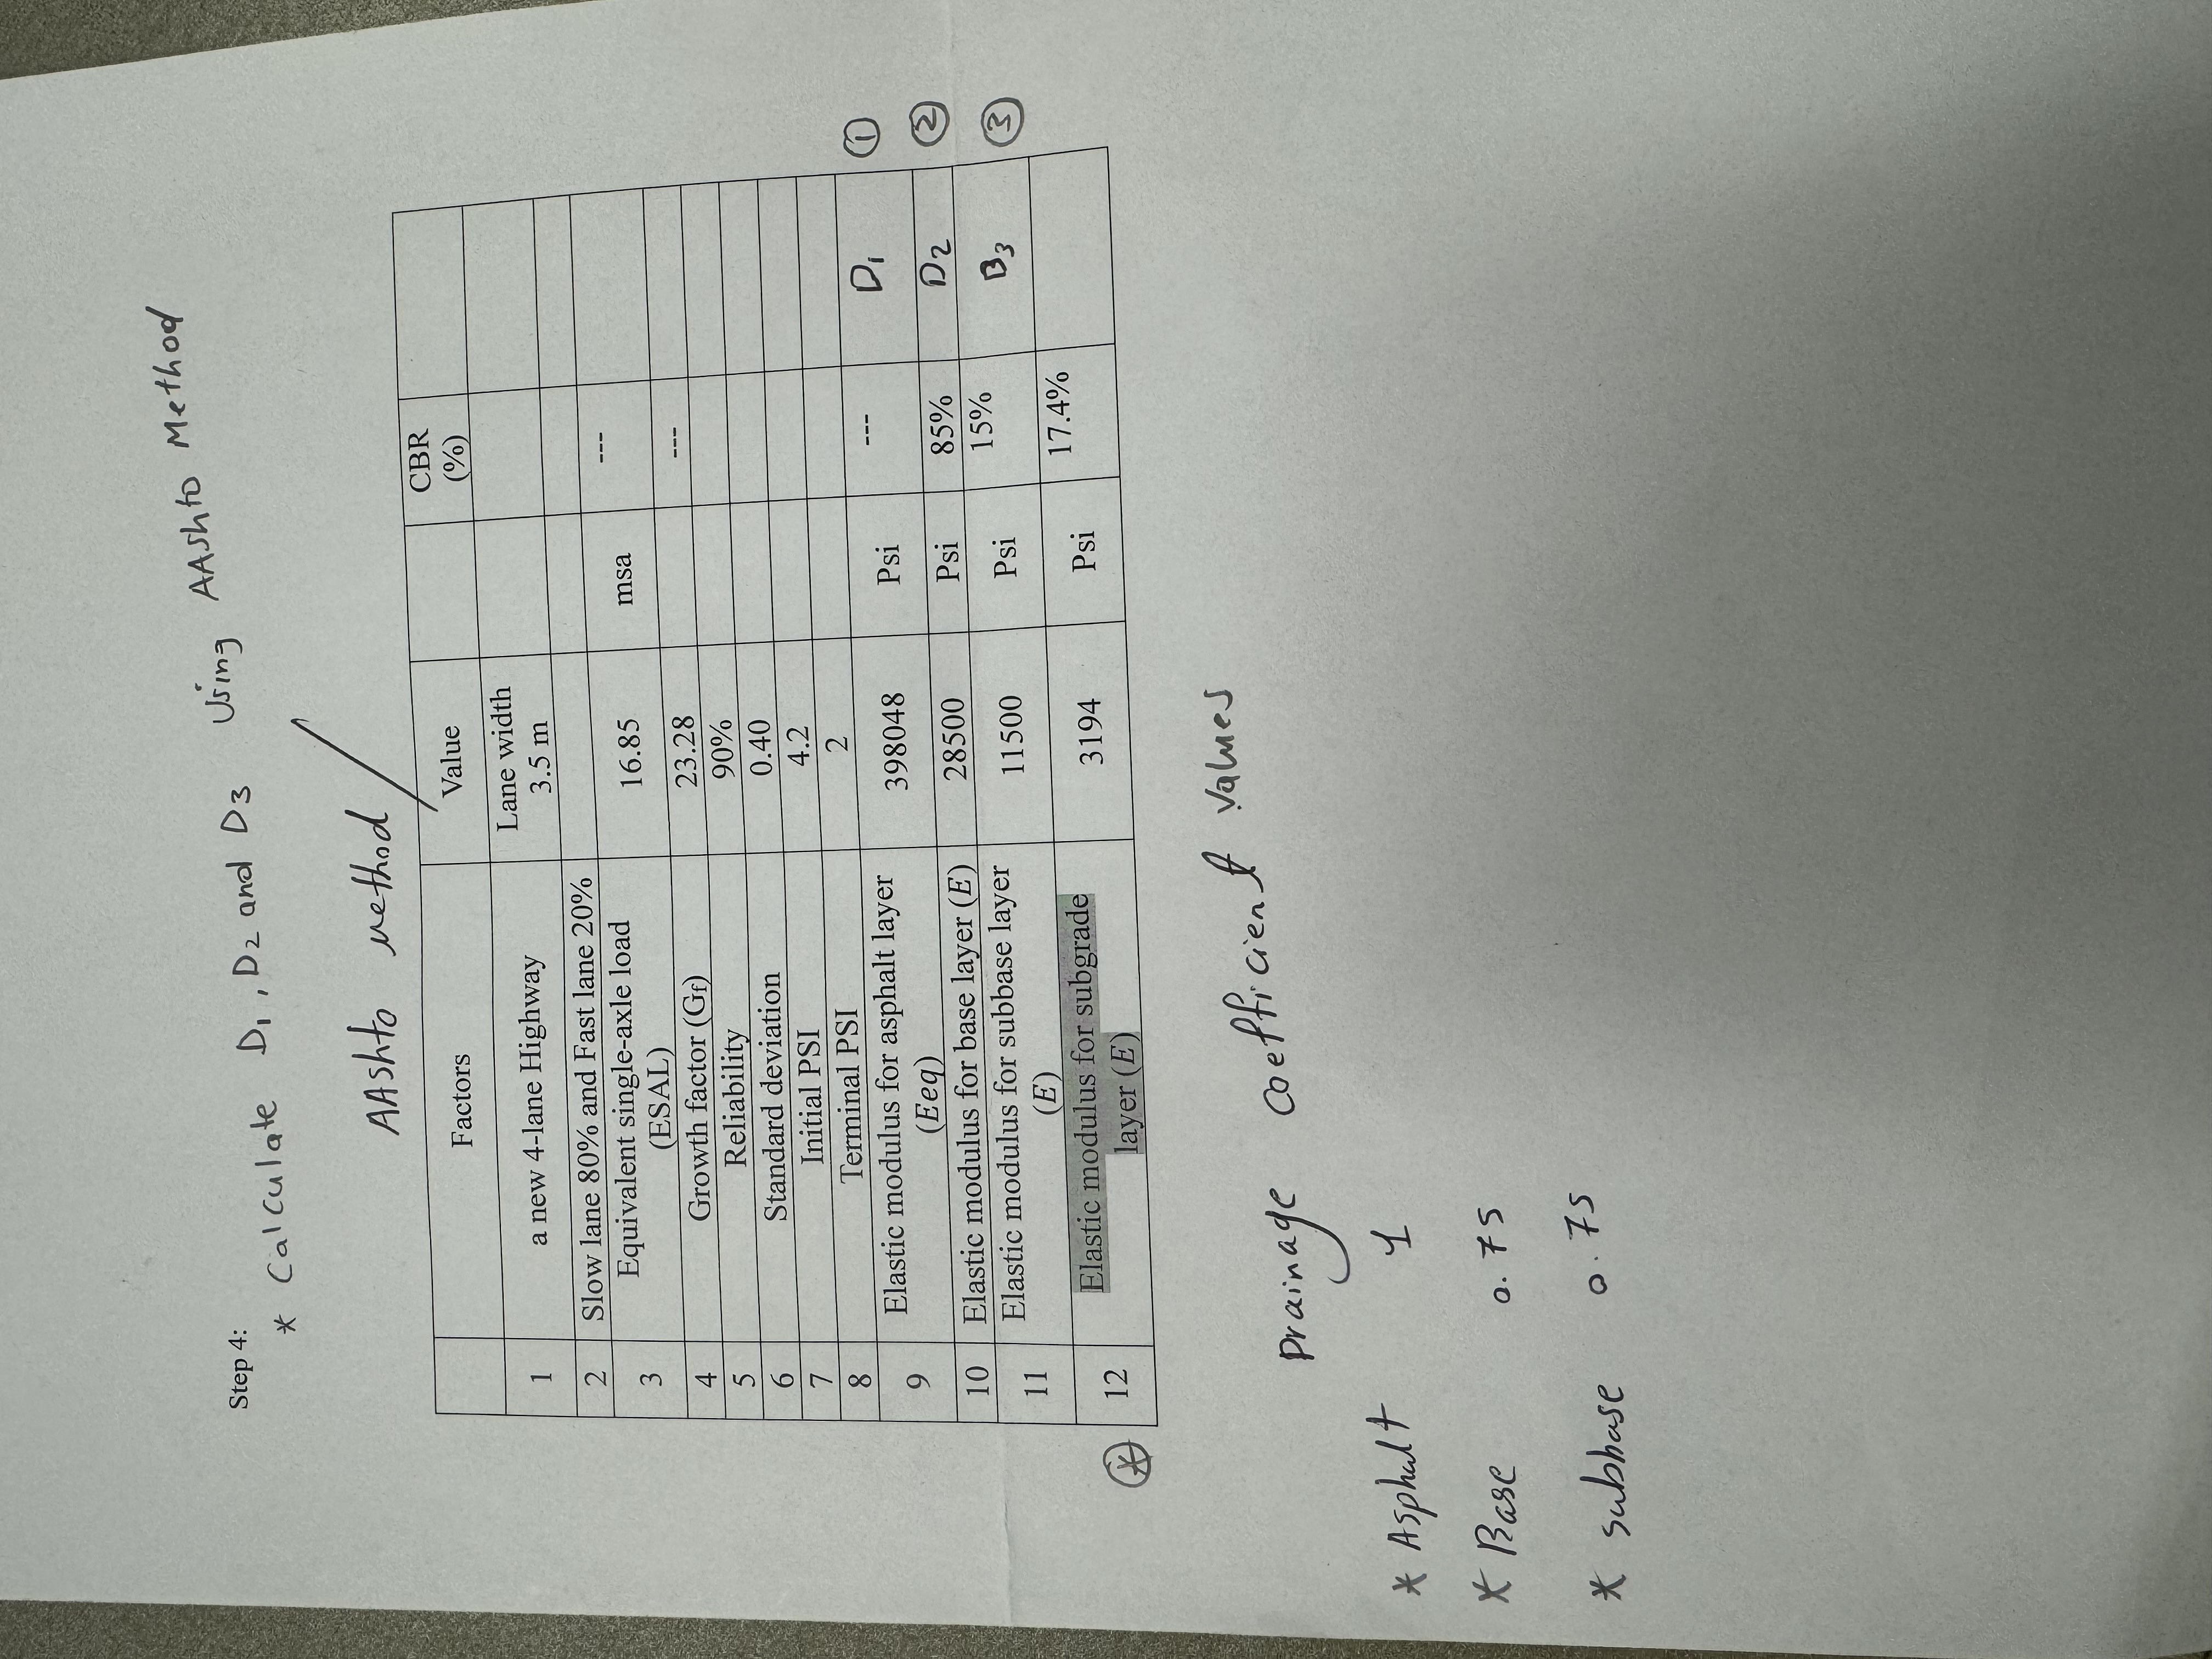 Step 4:
* Calculate D1, D2 and D3 Using AAshto Method
AAshto method
Factors Value CBR (%)
1 a new 4-lane Highway Lane width 3.5 m
2 Slow lane 80% and Fast lane 20%
3 Equivalent single-axle load (ESAL) 16.85 msa ---
4 Growth factor (Gf) 23.28 ---
5 Reliability 90%
6 Standard deviation 0.40
7 Initial PSI 4.2
8 Terminal PSI 2
9 Elastic modulus for asphalt layer (Eeq) 398048 Psi --- D1 ①
10 Elastic modulus for base layer (E) 28500 Psi 85% D2 ②
11 Elastic modulus for subbase layer (E) 11500 Psi 15% B3 ③
* 12 Elastic modulus for subgrade layer (E) 3194 Psi 17.4%
Drainage coefficient values
* Asphalt 1
* Base 0.75
* subbase 0.75